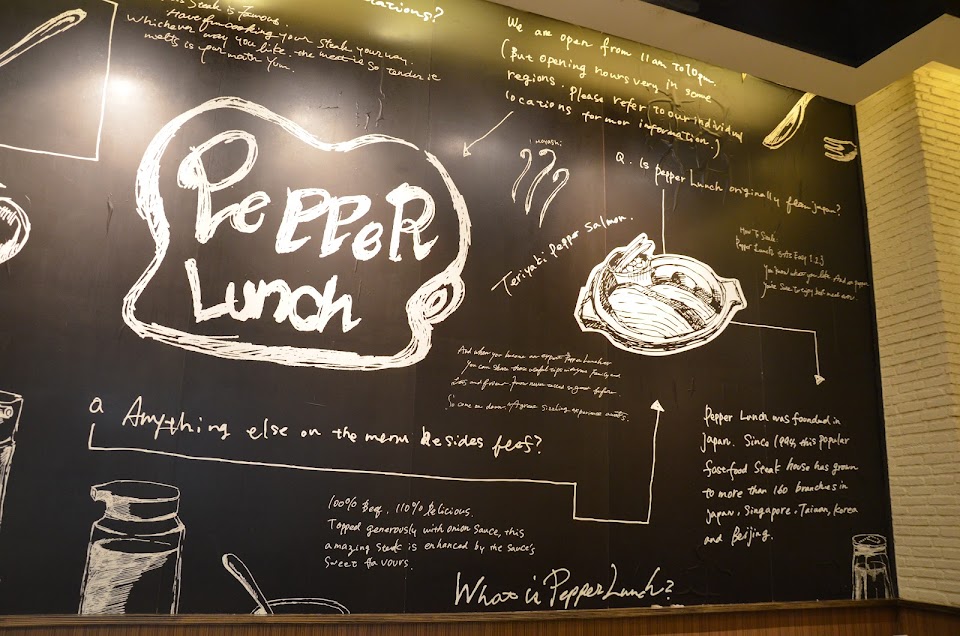 Steak is famous.
Have fun cooking your steak your way.
Whichever way you like. the meat is so tender it
melts is your math Yum.
locations?
We are open from 11am to 10pm.
(But opening hours very in some
regions. Please refer to our individual
locations for mor information.)
Pepper
Lunch
Moyashi
Q. Is pepper Lunch originally from japan?
Teriyaki Pepper Salmon.
How To Steak:
Easy 123
You know what you like And
And when you become an expert Pepper Luncher
You can share these useful tips with your family and
So come on down. A great sizzling experience awaits.
a Anything else on the menu besides feef?
Pepper Lunch was founded in
japan. Since 1994, this popular
fastfood Steak house has grown
to more than 160 branches in
japan, Singapore, Taiwan, Korea
and Beijing.
100% Beef. 110% delicious.
Topped generously with onion sauce, this
amazing steak is enhanced by the sauce's
sweet flavours.
What is Pepper Lunch?